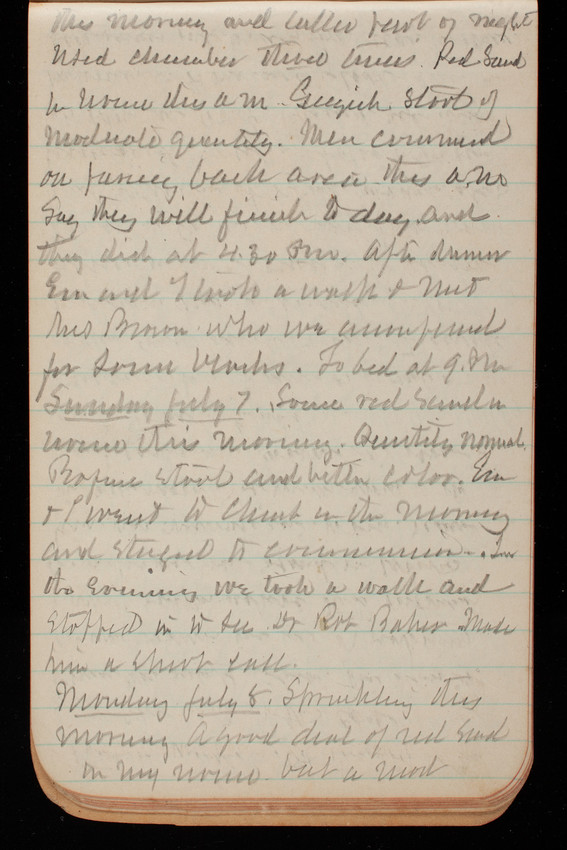 this morning and latter part of night
Used chamber three times. Red Sand
in urine this a.m. Greyish stool of
moderate quantity. Men commenced
on paving back area this a.m.
Say they will finish to day and
they did at 4.30 P.m. After dinner
Em and I took a walk & met
Mrs Brown who we accompanied
for some blocks. To bed at 9. P.m
Sunday July 7. Some red sand in
urine this morning. Quantity normal.
Profuse stool and better color. Em
& I went to Church in the morning
and stayed to communion. In
the evening we took a walk and
stopped in to see Dr Rob Baker. Made
him a short call.
Monday July 8. Sprinkling this
morning A good deal of red sand
in my urine but a mod